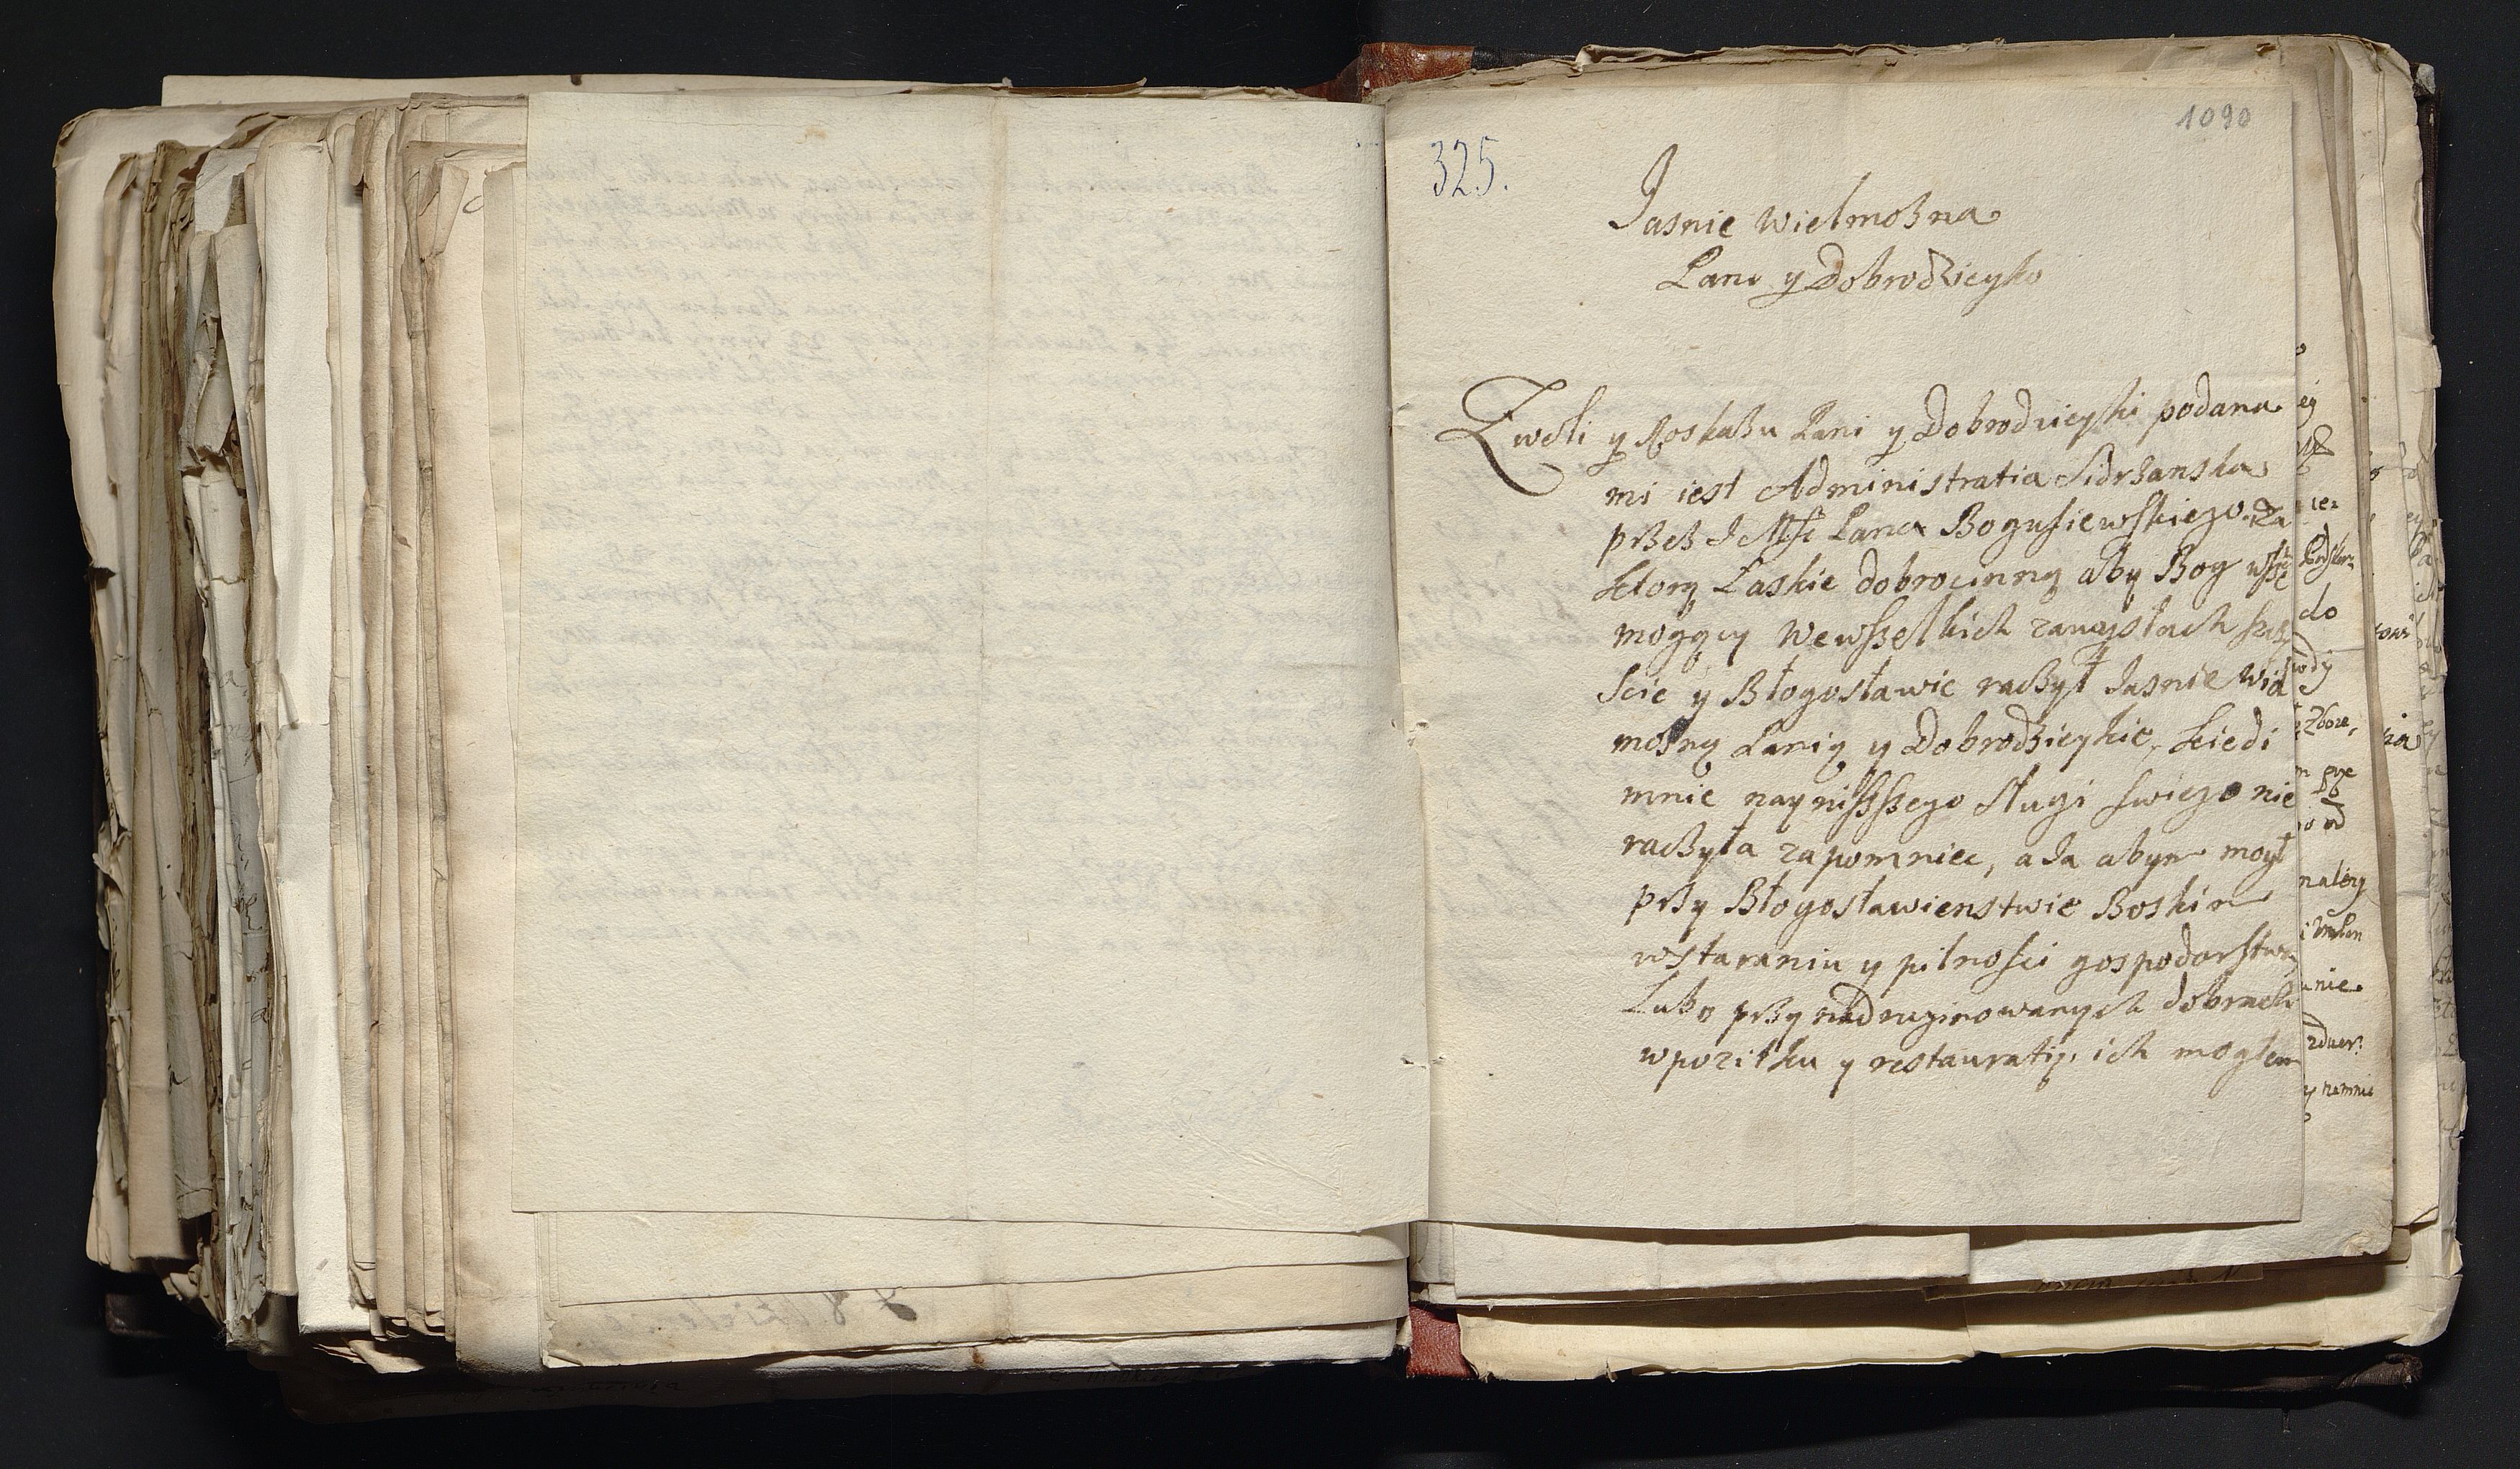 1090
325.
Jasnie Wielmoßna
Pani y Dobrodzieyko
Zwoli y Roskaßu Pani y Dobrodzieyki podana
mi iest Administratia Sidrßanska
prßeß Je Mści Pana Bogusiewskiego. Za
ktorą Łaskie dobrocinną aby Bog wsße
mogący Wewsßelkich zamysłach sząß
scie y Błogosławic racßył Jasnie Wiel
moßną Panią y Dobrodzieykie, kiedi
mnie naynißsßego Slugi swiego nie
racßyła zapomniec, a Ja abym mogł
prßy Błogosławienstwie Boskim
wstaraniu y pilnosci gospodarstwa
Lubo prßy nadruginowanych dobrach
wpozitku y restauratij ich moglem